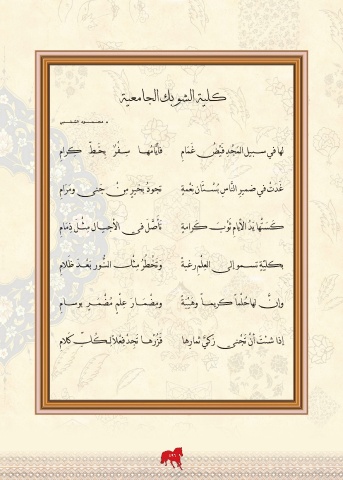 كلية الشوبك الجامعية
د. محمود الشلبي
لها في سبيل المَجْدِ فَيْضُ غَمَامِ فأيّامُها سِفْرٌ بِخَطِّ كرامِ
غَدَتْ في ضميرِ النّاسِ بُسْتَانَ نِعْمةٍ تجودُ بخَيرٍ مِنْ جَنى ومَرامِ
كَسَتْها يَدُ الأيّامِ ثَوْبَ كَرامةٍ تأصَّلَ في الأجيالِ مِثْلَ ذِمَامِ
بكليّةٍ تسمو إلى العِلْمِ رغبةً وتَخْطُرُ مِثْلَ النُّورِ بَعْدَ ظلامِ
وإنَّ لها حُلْماً كريماً وهَيْبَةً ومِضْمَارَ عِلْمٍ مُضْمَرٍ بوسامِ
إذا شئتَ أنْ تَجْني زكيَّ ثمارِها فَزُرْها تَجِدْ فِعْلاً لِكُلِّ كَلامِ